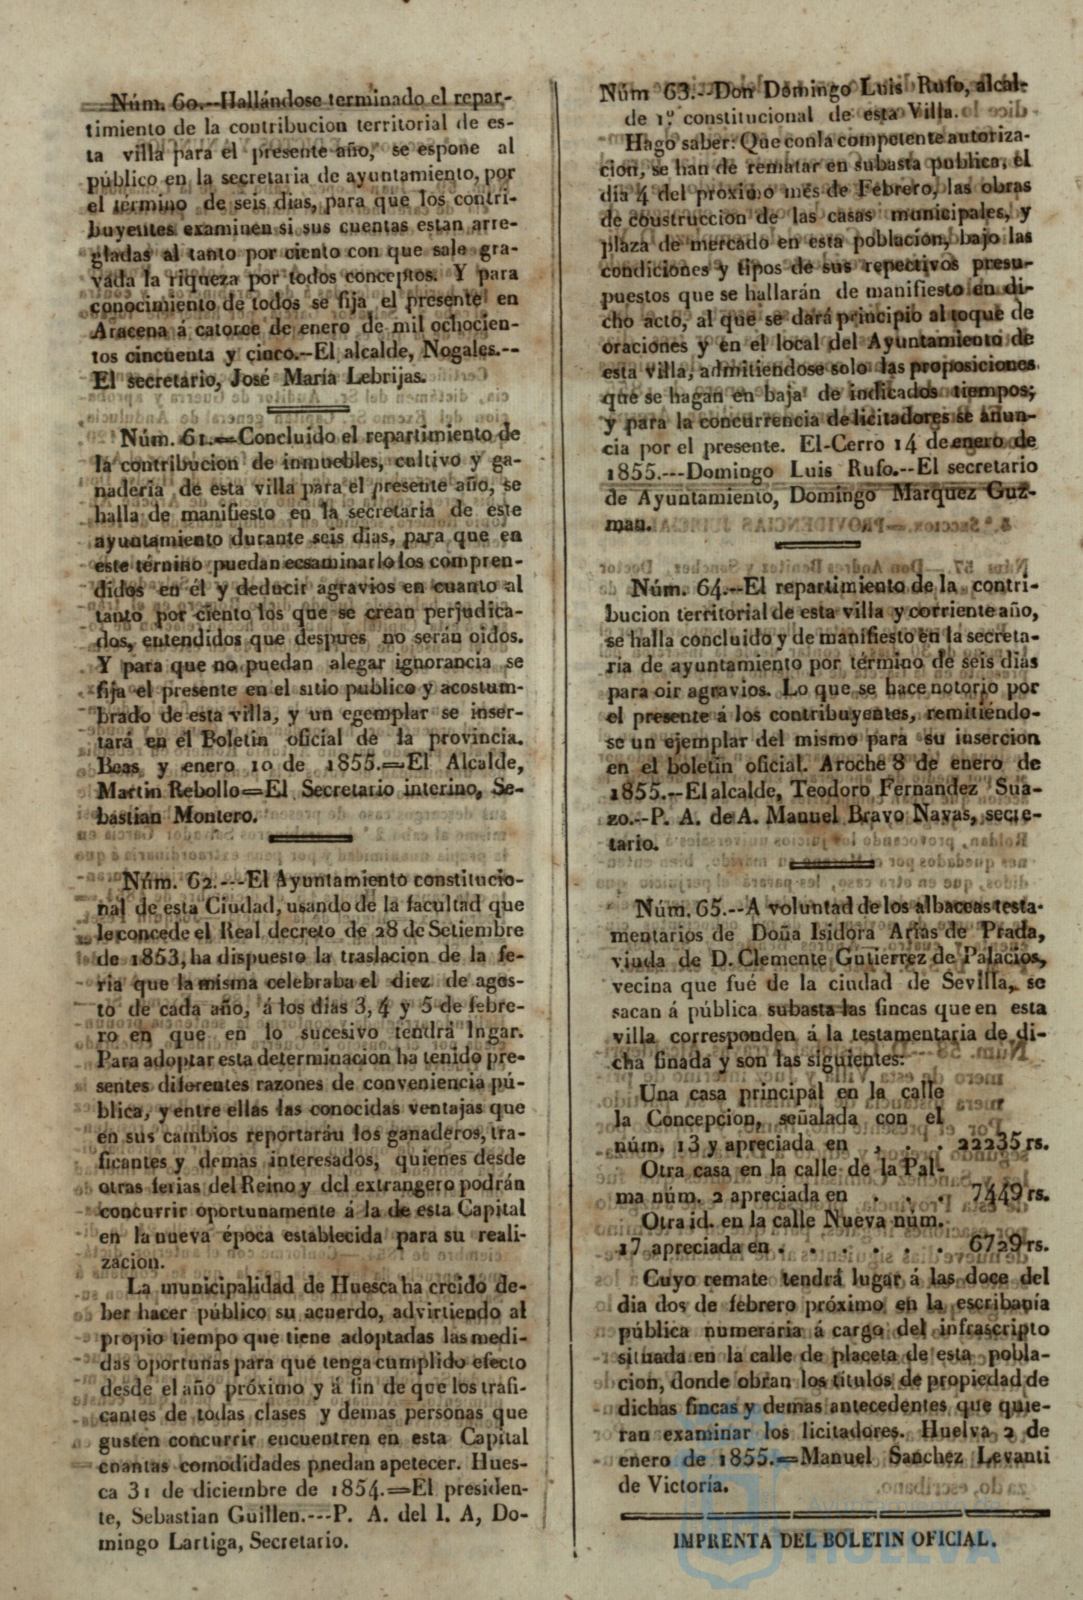 Núm. 60.--Hallándose terminado el repar-
timiento de la contribucion territorial de es-
ta villa para el presente año, se espone al
público en la secretaria de ayuntamiento, por
el término de seis dias, para que los contri-
buyentes examinen si sus cuentas estan arre-
gladas al tanto por ciento con que sale gra-
vada la riqueza por todos conceptos. Y para
conocimiento de todos se fija el presente en
Aracena á catorce de enero de mil ochocien-
tos cincuenta y cinco.--El alcalde, Nogales.--
El secretario, José María Lebrijas.
Núm. 61.=Concluido el repartimiento de
la contribucion de inmuebles, cultivo y ga-
naderia de esta villa para el presente año, se
halla de manifiesto en la secretaria de este
ayuntamiento durante seis dias, para que en
este término puedan ecsaminarlo los compren-
didos en él y deducir agravios en cuanto al
tanto por ciento los que se crean perjudica-
dos, entendidos que despues no serán oidos.
Y para que no puedan alegar ignorancia se
fija el presente en el sitio publico y acostum-
brado de esta villa, y un egemplar se inser-
tará en el Boletin oficial de la provincia.
Beas y enero 10 de 1855.=El Alcalde,
Martin Rebollo=El Secretario interino, Se-
bastian Montero.
Núm. 62.---El Ayuntamiento constitucio-
nal de esta Ciudad, usando de la facultad que
le concede el Real decreto de 28 de Setiembre
de 1853, ha dispuesto la traslacion de la fe-
ria que la misma celebraba el diez de agos-
to de cada año, á los dias 3, 4 y 5 de febre-
ro en que en lo sucesivo tendrá lngar.
Para adoptar esta determinacion ha tenido pre-
sentes diferentes razones de conveniencia pú-
blica, y entre ellas las conocidas ventajas que
en sus cambios reportaráu los ganaderos, tra-
ficantes y demas interesados, quienes desde
otras ferias del Reino y del extrangero podrán
concurrir oportunamente á la de esta Capital
en la nueva época establecida para su reali-
zacion.
La municipalidad de Huesca ha creido de-
ber hacer público su acuerdo, advirtiendo al
propio tiempo que tiene adoptadas las medi-
das oportunas para que tenga cumplido efecto
desde el año próximo y á fin de que los trafi-
cantes de todas clases y demas personas que
gusten concurrir encuentren en esta Capital
cuantas comodidades pnedan apetecer. Hues-
ca 31 de diciembre de 1854.=El presiden-
te, Sebastian Guillen.---P. A. del I. A, Do-
mingo Lartiga, Secretario.
Núm 63.--Don Domingo Luis Rufo, alcal-
de 1º. constitucional de esta Villa.
Hago saber: Que con la competente autoriza-
cion, se han de rematar en subasta publica, el
dia 4 del próximo mes de Febrero, las obras
de coustruccion de las casas municipales, y
plaza de mercado en esta poblacion, bajo las
condiciones y tipos de sus repectivos presu-
puestos que se hallarán de manifiesto en di-
cho acto, al que se dará principio al toque de
oraciones y en el local del Ayuntamiento de
esta villa, admitiendose solo las proposiciones
que se hagan en baja de indicados tiempos;
y para la concurrencia de licitadores se anun-
cia por el presente. El-Cerro 14 de enero de
1855.---Domingo Luis Rufo.--El secretario
de Ayuntamiento, Domingo Marquez Guz-
man.
Núm. 64.--El repartimiento de la contri-
bucion territorial de esta villa y corriente año,
se halla concluido y de manifiesto en la secreta-
ria de ayuntamiento por término de seis dias
para oir agravios. Lo que se hace notorio por
el presente á los contribuyentes, remitiéndo-
se un ejemplar del mismo para su insercion
en el boletin oficial. Aroche 8 de enero de
1855.--El alcalde, Teodoro Fernandez Sua-
zo.--P. A. de A. Manuel Bravo Navas, secre-
tario.
Núm. 65.--A voluntad de los albaceas testa-
mentarios de Doña Isidora Arias de Prada,
viuda de D. Clemente Gutierrez de Palacios,
vecina que fué de la ciudad de Sevilla, se
sacan á pública subasta las fincas que en esta
villa corresponden á la testamentaria de di-
cha finada y son las siguientes:
Una casa principal en la calle
la Concepcion, señalada con el
núm. 13 y apreciada en , . . 22235 rs.
Otra casa en la calle de la Pal-
ma núm. 2 apreciada en . . . 7449 rs.
Otra id. en la calle Nueva núm.
17 apreciada en . . . . . . 6729 rs.
Cuyo remate tendrá lugar á las doce del
dia dos de febrero próximo en la escribanía
pública numeraria á cargo del infrascripto
situada en la calle de placeta de esta pobla-
cion, donde obran los titulos de propiedad de
dichas fincas y demas antecedentes que quie-
ran examinar los licitadores. Huelva 2 de
enero de 1855.=Manuel Sanchez Levanti
de Victoría.
IMPRENTA DEL BOLETIN OFICIAL.
Ayuntamiento de
HUELVA